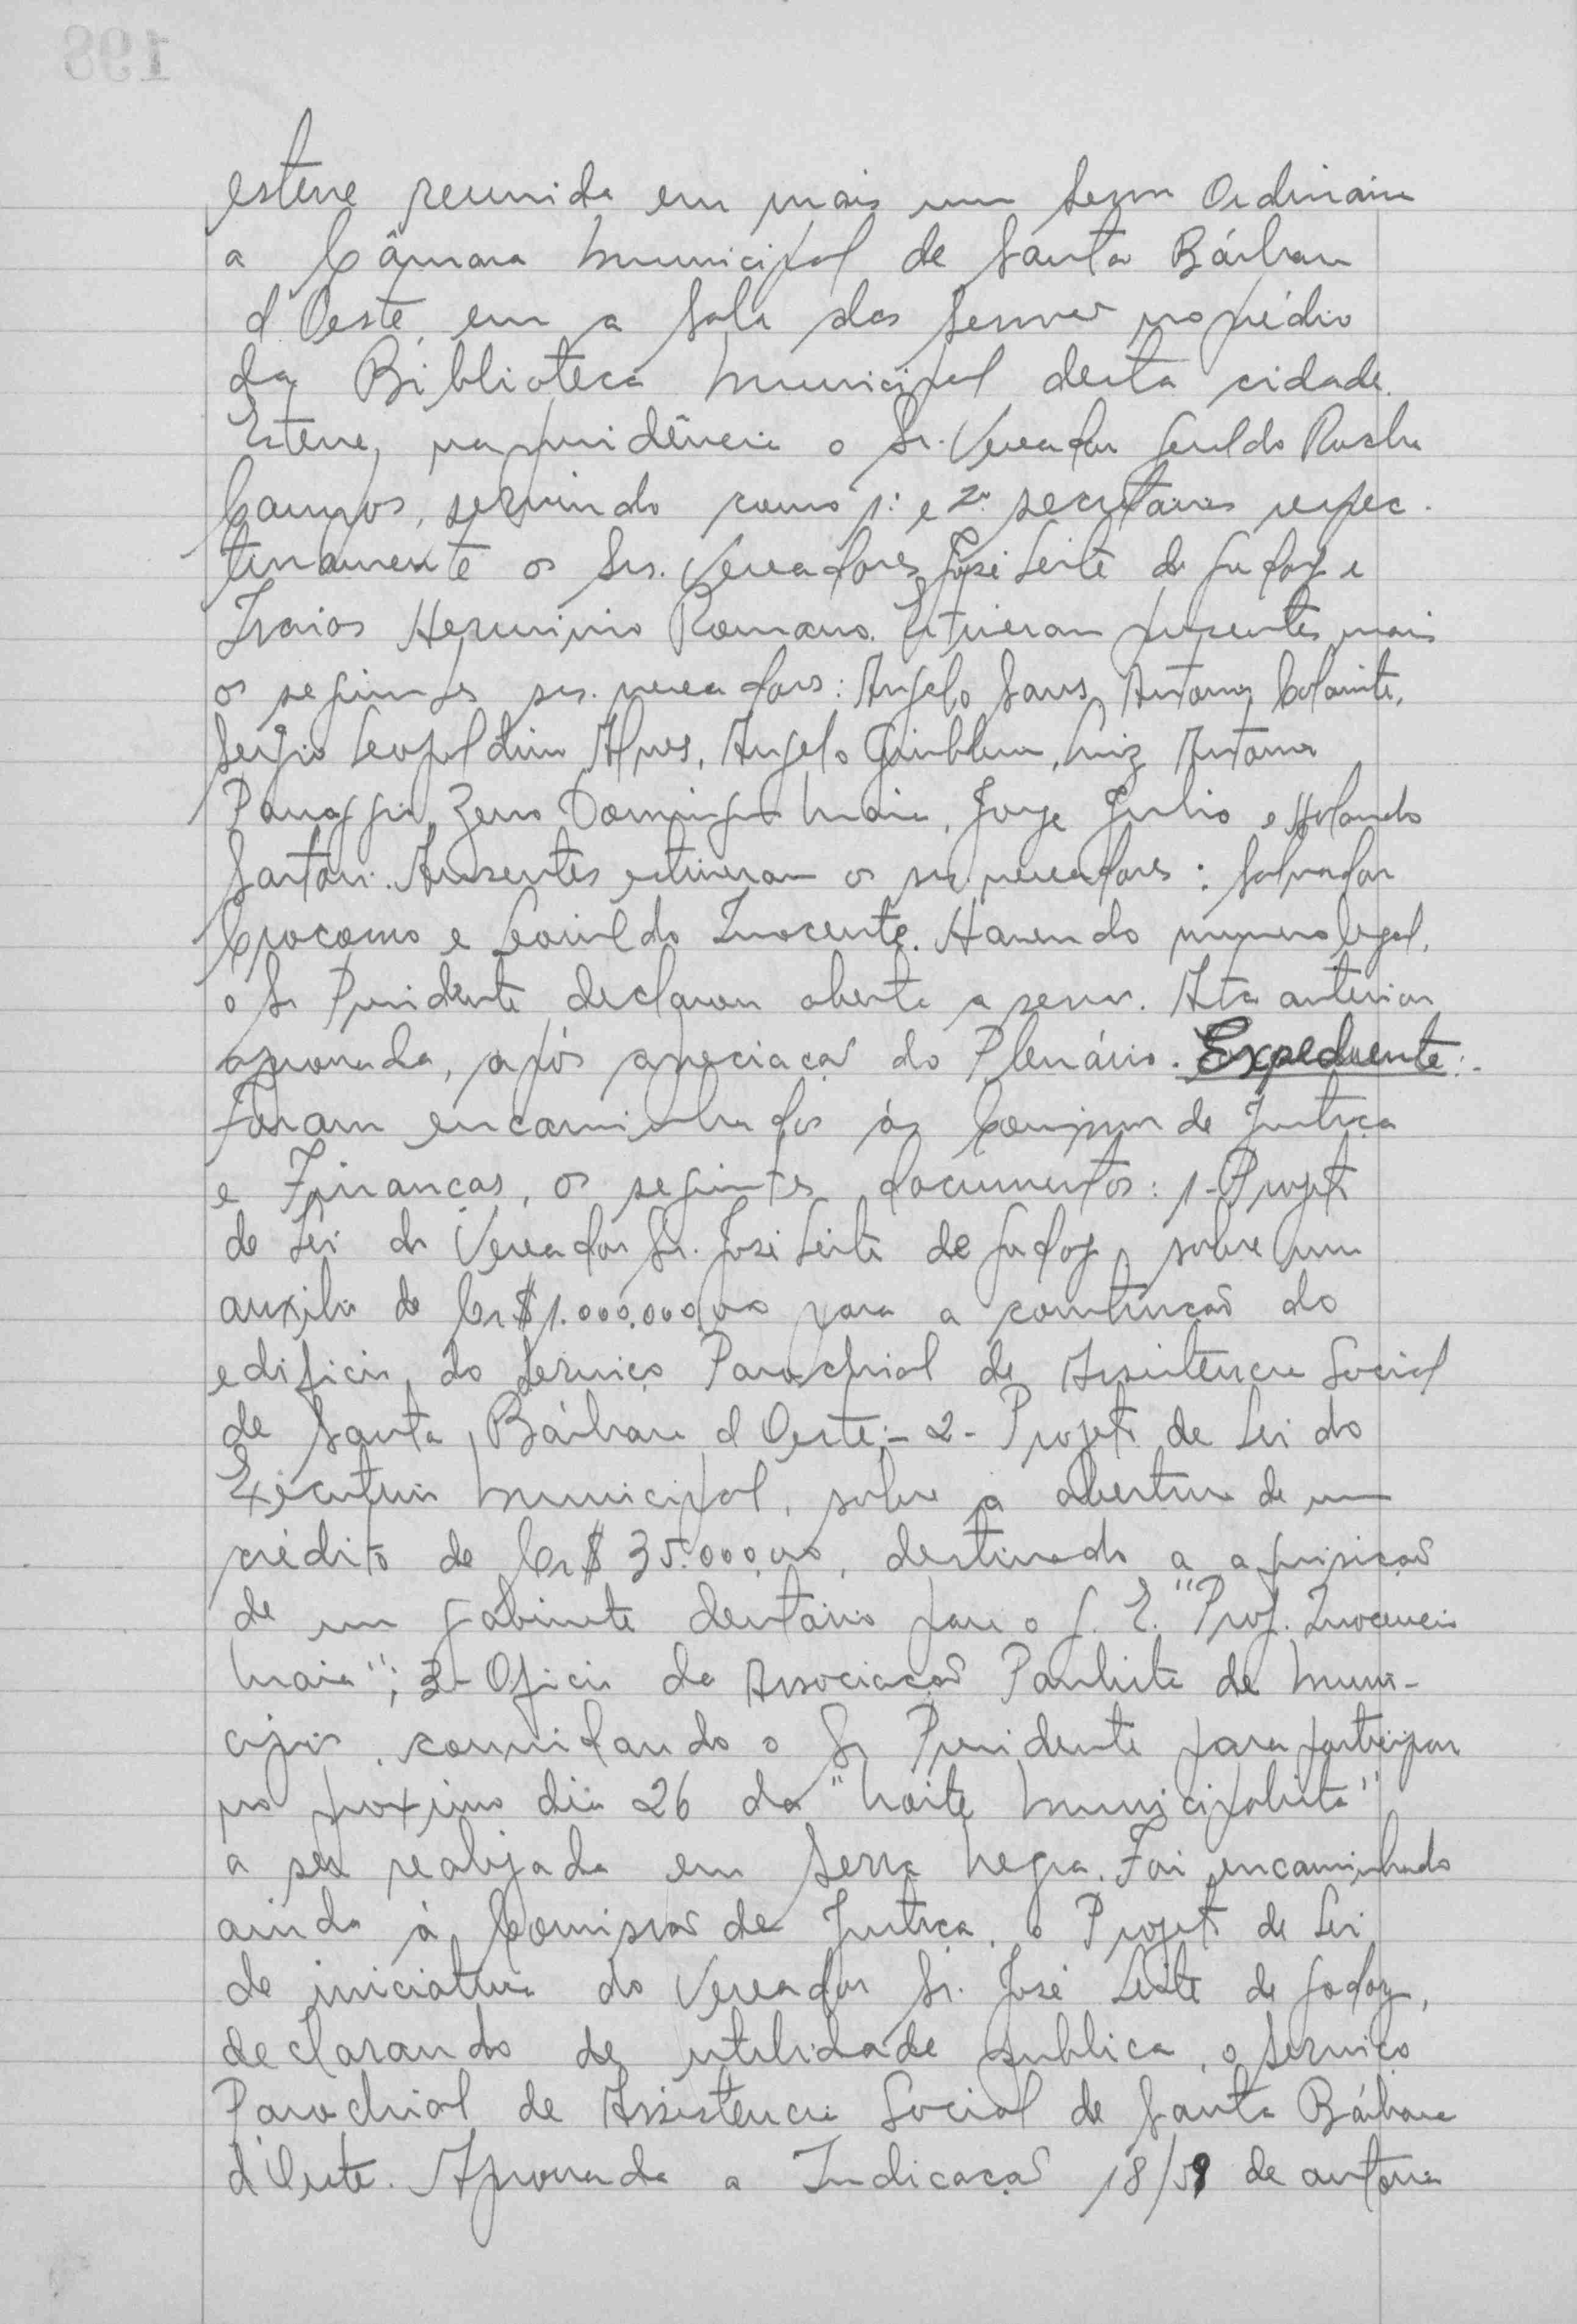 esteve reunida em mais uma sessão Ordinária
a Câmara Municipal de Santa Bárbara
d'Oeste, em a Sala das Sessões no prédio
da Biblioteca Municipal desta cidade.
Esteve na presidência o Sr. Vereador Geraldo Rocha
Campos, servindo como 1º e 2º secretários respec-
tivamente os Srs. Vereadores José Leite de Godoy e
Isaias Herminio Romano. Estiveram presentes mais
os seguintes srs. vereadores: Angelo Sans, Antonio
Sergio Leopoldino Alves, Angelo Giubbina, Luiz Antonio
Panaggio, Zeno Domingos Maia, Jorge Julio e
Sartori. Ausentes estiveram os srs. vereadores: Salvador
e Leonildo Inocente. Havendo numero legal,
o Sr Presidente declarou aberta a sessão. Ata anterior
aprovada, após apreciação do Plenário. Expediente:-
Foram encaminhados às Comissões de Justiça
e Finanças, os seguintes documentos: 1- Projeto
de Lei do Vereador Sr. José Leite de Godoy, sobre um
auxilio de Cr$ 1.000.000,00 para a construção do
edificio do Serviço Parochial de Assistencia Social
de Santa Bárbara d'Oeste;- 2- Projeto de Lei do
Executivo Municipal, sobre a abertura de um
crédito de Cr$ 35.000,00, destinado a aquisição
de um gabinete dentário para o G. E. "Prof. Inocencio
Maia"; 3- Oficio da Associação Paulista de Muni-
cipios, convidando o Sr Presidente para participar
no proximo dia 26 da "Noite Municipalista"
a ser realizada em Serra Negra. Foi encaminhado
ainda à Comissão de Justiça, o Projeto de Lei
de iniciativa do Vereador Sr. José Leite de Godoy,
declarando de utilidade publica, o Serviço
Parochial de Assistencia Social de Santa Bárbara
d'Oeste. Aprovada a Indicação 18/59 de autoria